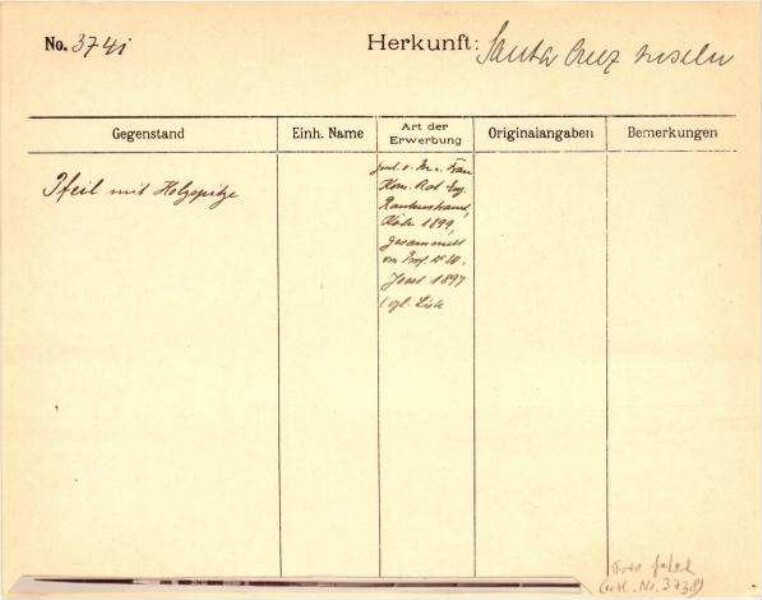 No. 3741
Herkunft: Santa Cruz Inseln
Gegenstand
Einh. Name
Art der Erwerbung
Originalangaben
Bemerkungen
Pfeil mit Holzspitze
Frau
Kom. Rat Eug.
Rautenstrauch,
Köln 1899,
gesammelt
von Prof. Dr. W.
Joest 1897
(vgl. Liste
Foto fehlt
(evtl. Nr. 3738)